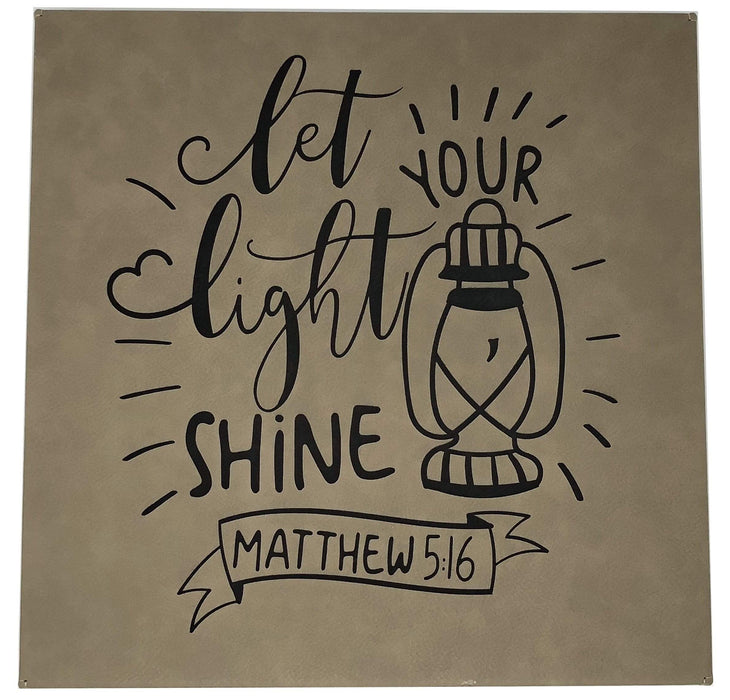 let YOUR
light
SHiNE
MATTHEW 5:16